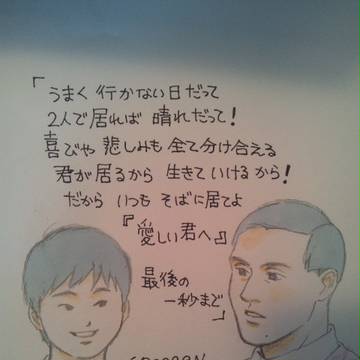 「うまく行かない日だって
2人で居れば 晴れだって！
喜びや 悲しみも 全て分け合える
君が居るから 生きていけるから！
だから いつも そばに居てよ
『愛しい君へ』
最後の
一秒まで」